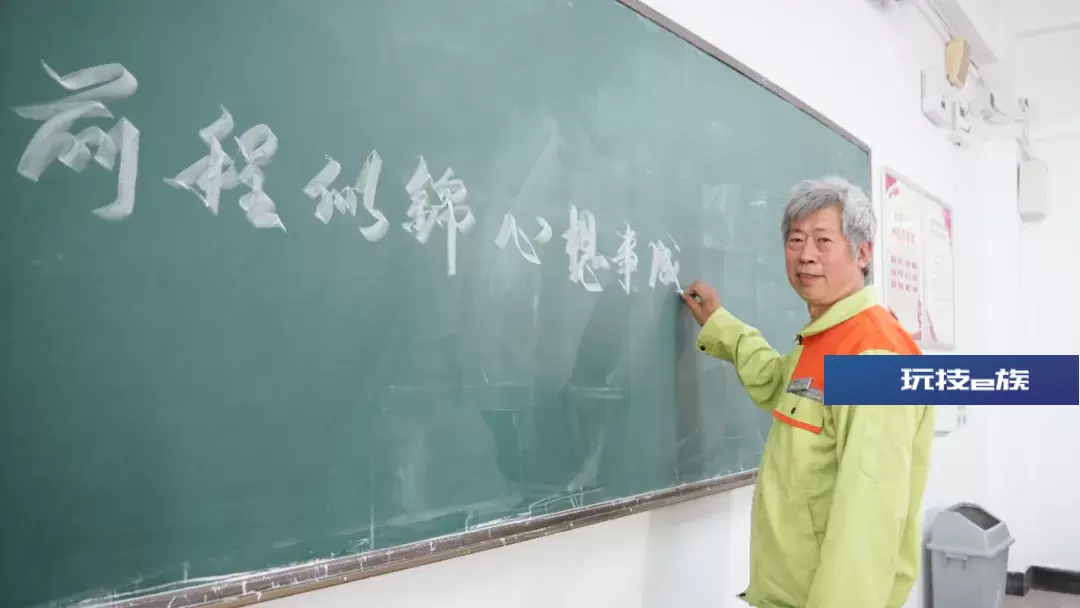 前程似錦心想事成
玩技e族